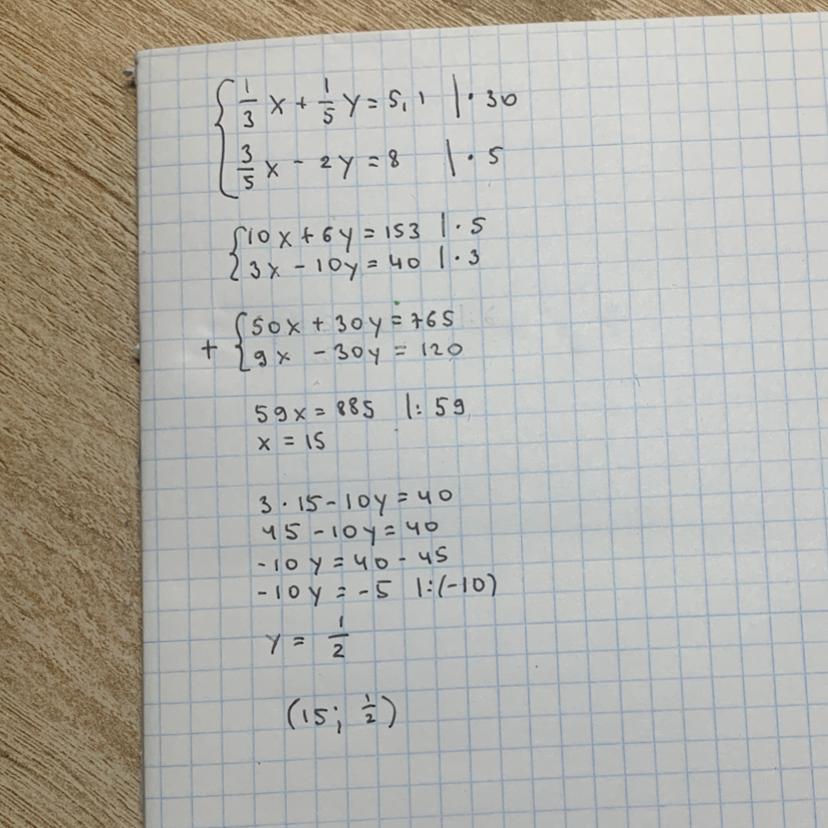 { 1/3 x + 1/5 y = 5,1 | · 30
3/5 x - 2y = 8 | · 5
{ 10x + 6y = 153 | · 5
3x - 10y = 40 | · 3
+ { 50x + 30y = 765
9x - 30y = 120
59x = 885 |: 59
x = 15
3 · 15 - 10y = 40
45 - 10y = 40
-10y = 40 - 45
-10y = -5 |:(-10)
y = 1/2
(15; 1/2)